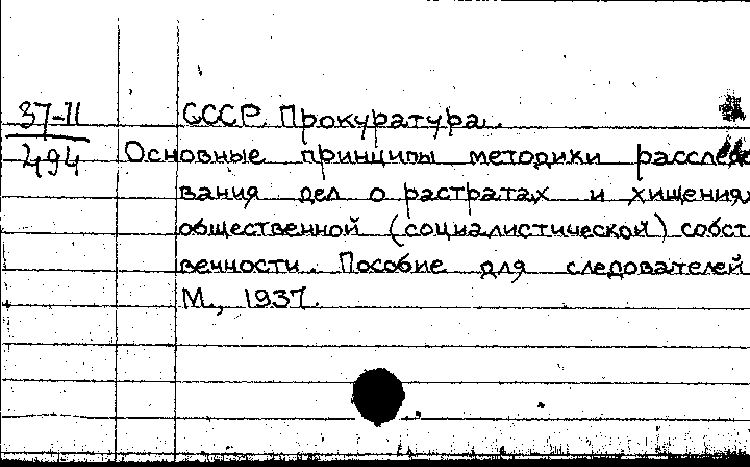 37-II
494
СССР. Прокуратура.
Основные принципы методики расследо
вания дел о растратах и хищениях
общественной (социалистической) собст
венности. Пособие для следователей
М., 1937.